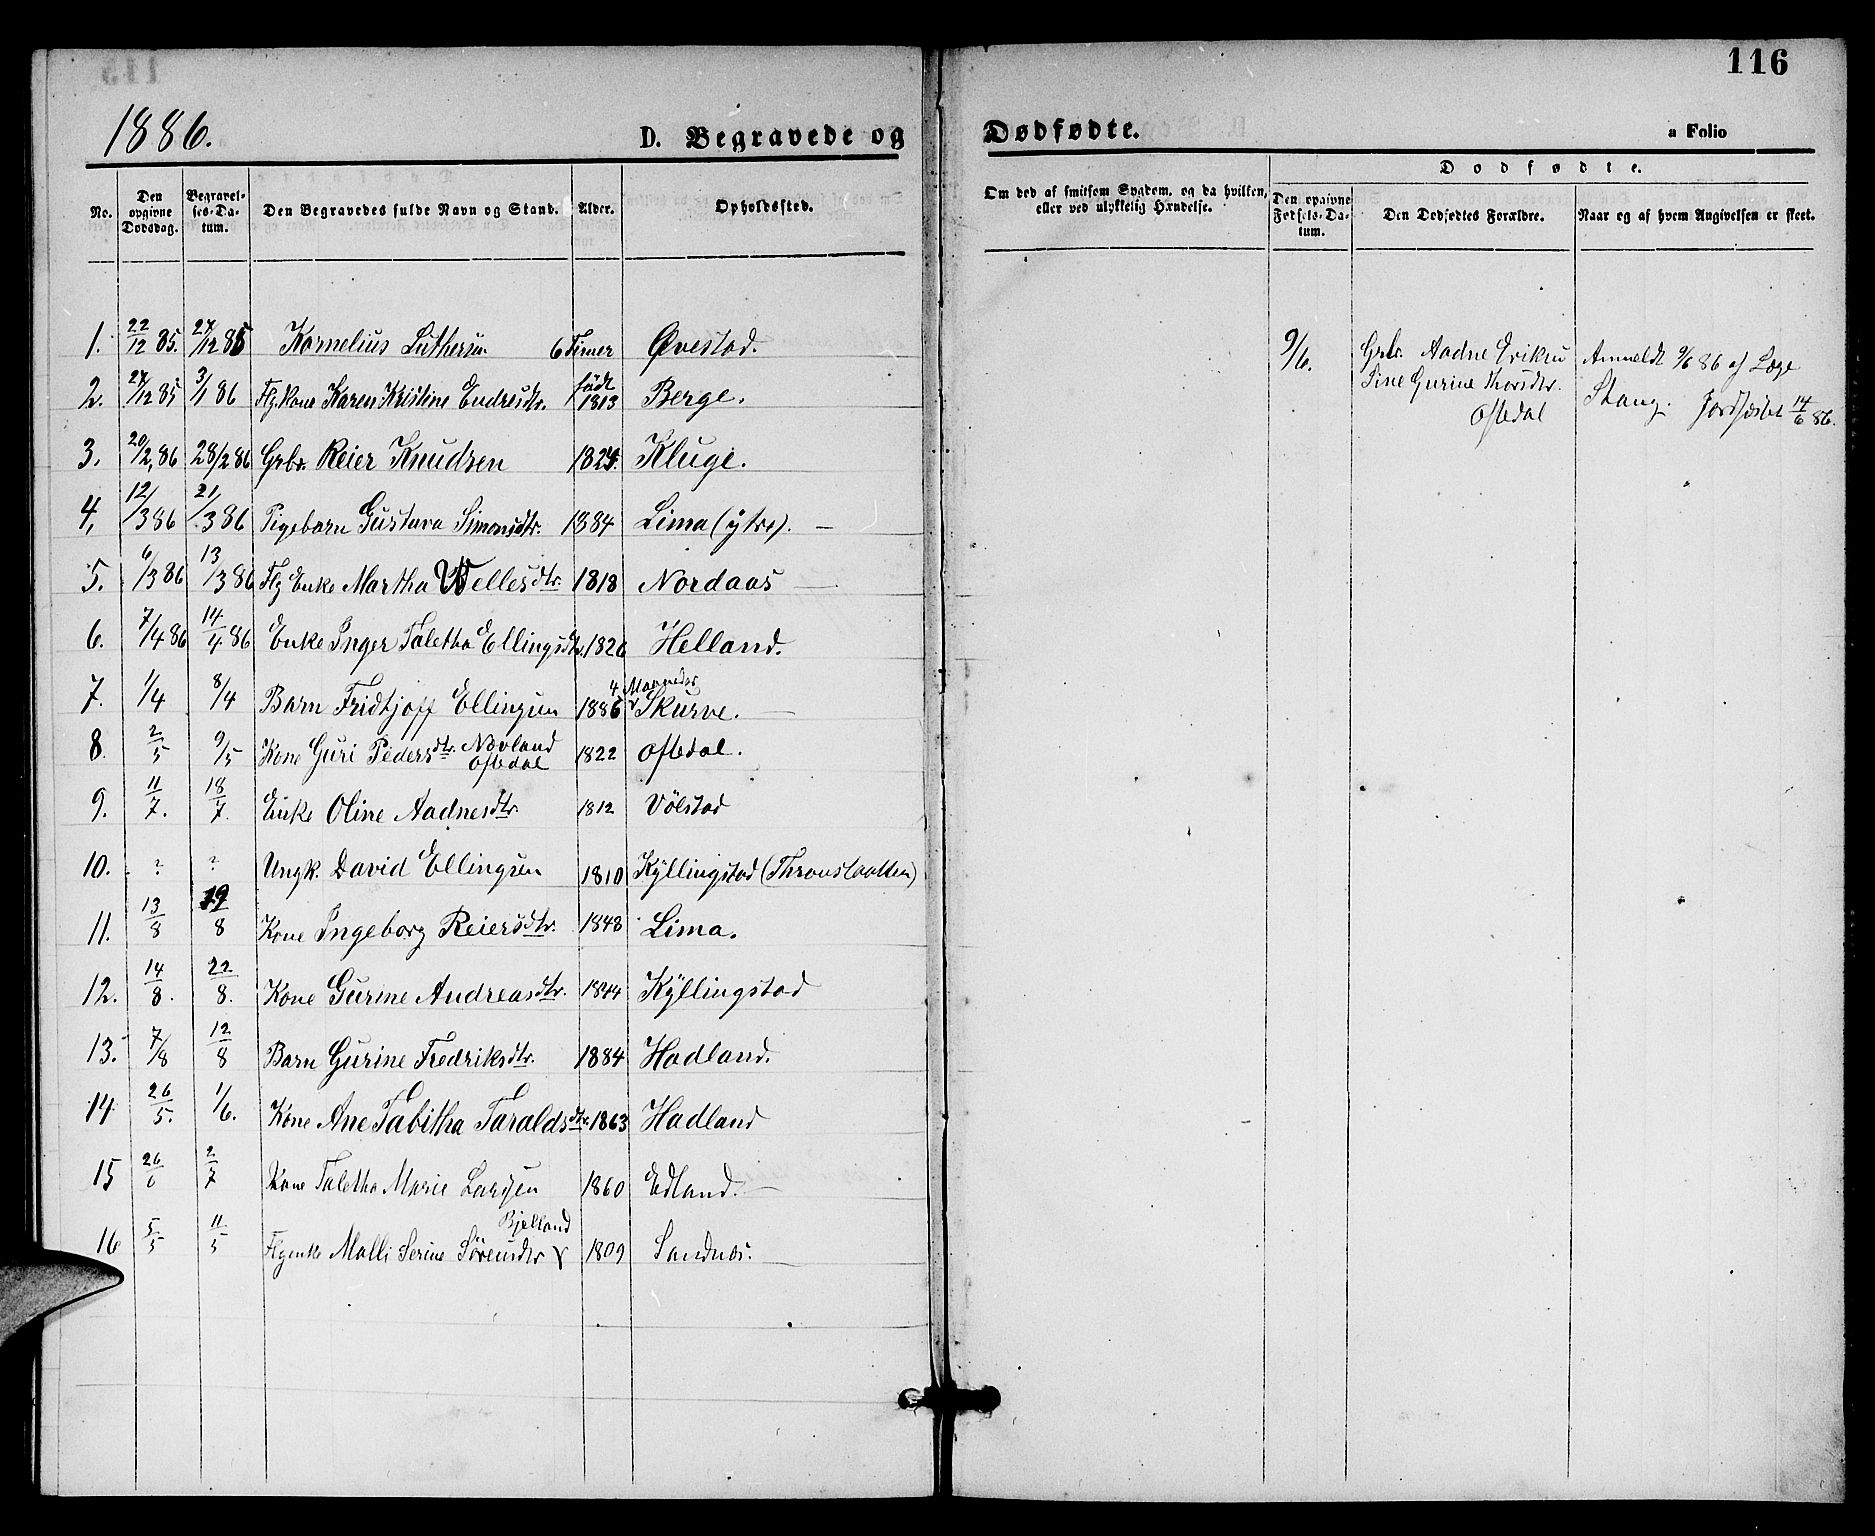 116
1886.
D. Begravede og Dødfødte.
a Folio
No.
Den opgivne Dødsdag.
Begravelses-Datum.
Den Begravedes fulde Navn og Stand.
Alder.
Opholdssted.
Om død af smitsom Sygdom, og da hvilken, eller ved ulykkelig Hændelse.
Dødfødte.
Den opgivne Fødsels-Datum.
Den Dødfødtes Forældre.
Naar og af hvem Angivelsen er skeet.
1. 22/12 85. 27/12 85 Kornelius Luthersen 6 Timer Øvestad.
2. 27/12 85 3/1 86 Flgkone Karen Kristine Endresdtr. født 1813 Berge.
3. 20/2 86 28/2 86 Grbr. Reier Knudsen 1824. Kluge.
4. 12/3 86 21/3 86 Pigebarn Gustava Simonsdtr. 1884 Lima (ytre). —
5. 6/3 86 13/3 86 Flg Enke Martha Vellesdtr. 1818 Nordaas —
6. 7/4 86 14/4 86 Enke Inger Taletha Ellingsdtr. 1826 Helland.
7. 1/4 8/4 Barn Fridtjoff Ellingsen 1886 4 Maaneder Skurve. —
8. 2/5 9/5 Kone Guri Pedersdtr. Novland Oftedal 1822 Oftedal.
9. 11/7. 18/7. Enke Oline Aadnesdtr. 1812 Vølstad
10. ? ? Ungk. David Ellingsen 1810 Kyllingstad (Thronslaatten)
11. 13/8 19/8 Kone Ingeborg Reiersdtr. 1848 Lima.
12. 14/8. 22/8. Kone Gurine Andreasdtr. 1844 Kyllingstad
13. 7/8 12/8 Barn Gurine Fredriksdtr. 1884 Hadland.
14. 26/5. 1/6. Kone Ane Tabitha Taraldsdtr. 1863 Hadland
15 26/6 2/7 Kone Taletha Marie Larsen 1860 Edland. —
16 5/5 11/5 Flgenke Malli Serine Sørensdtr Bjelland 1809 Sandnæs. —
9/6.
Grbr. Aadne Eriksen
Sine Gurine Thorsdtr.
Oftedal
Anmeldt 9/6 86 af Læge
Stang. Jordfæstet 14/6 86.